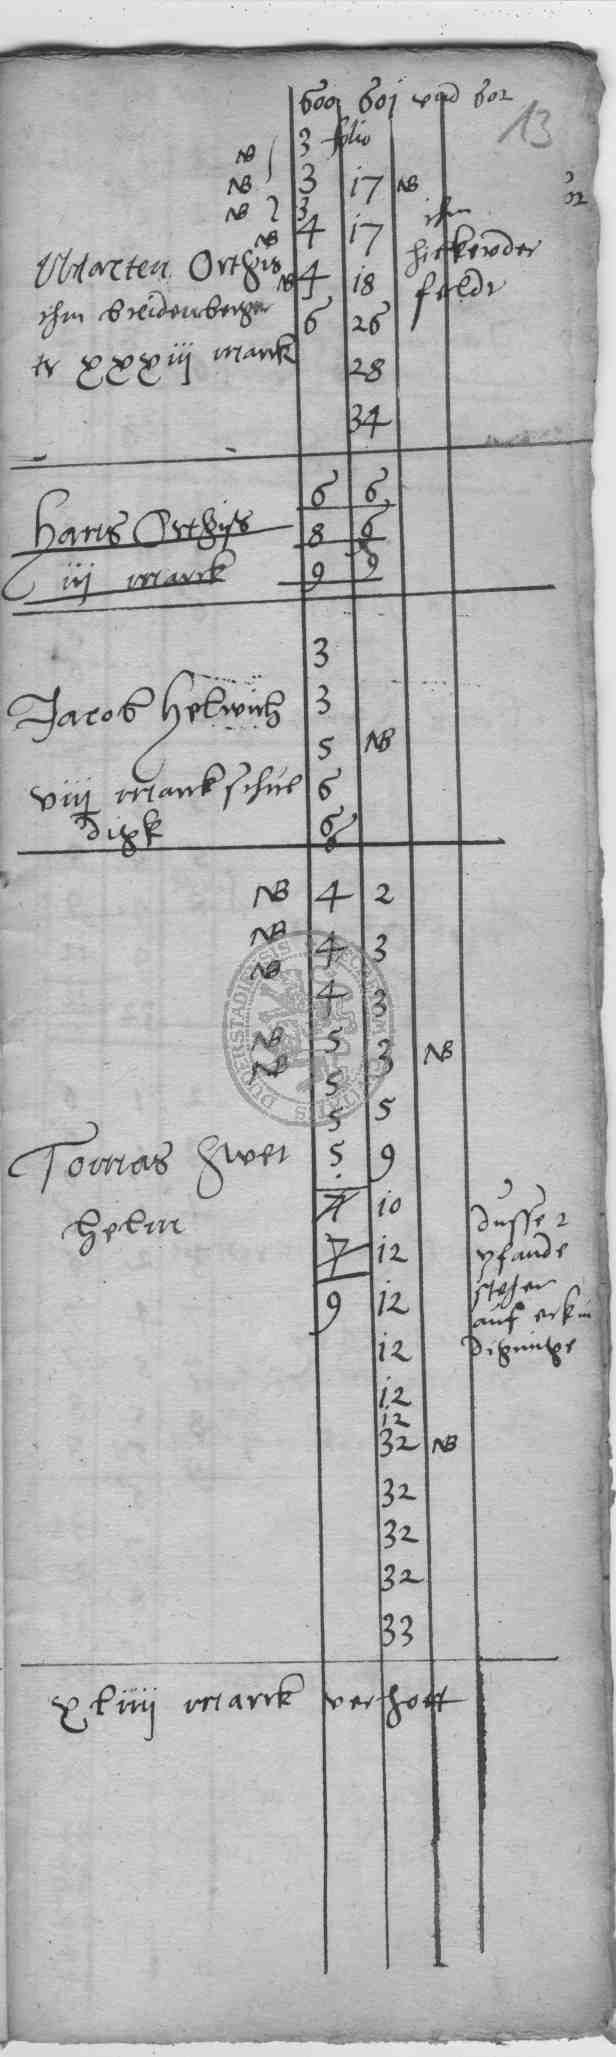 600 601 vnd 602
13
3 folio
NB
NB 3 17 NB
NB 3
NB 4 17 ihm
Marten Orthis NB 4 18 feldt
ihm breidenberge 6 26
tr xxxiij marck 28
34
6 6
Hans Orthijs 8 6
iij marck 9 9
3
Jacob Helwich 3
5 NB
viij marck schul 6
digk 6
NB 4 2
NB 4 3
NB 4 3
NB 5 3 NB
NB 5
5 5
Tomas Zwei 5 9
helm 7 10 dusse 2
7 12 pfande
9 12 stehen
auf erkun
12 digunge
12
12
32 NB
32
32
32
33
xliiij marck verhort